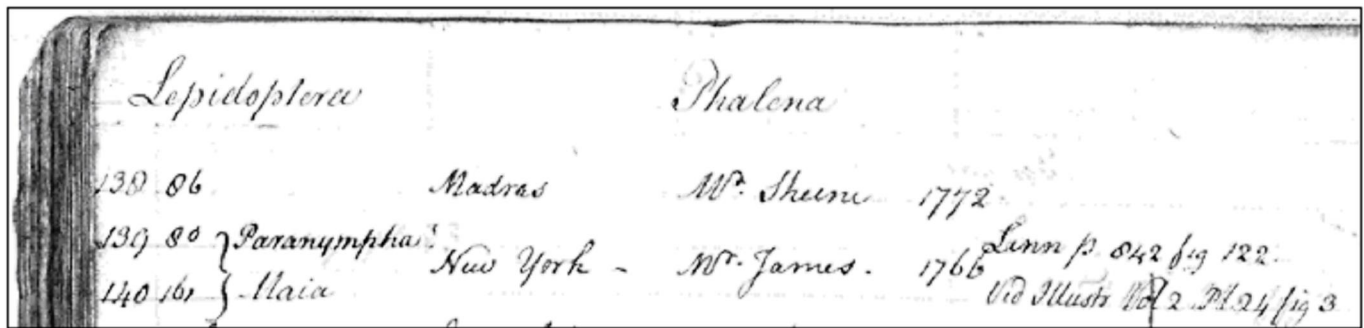 Lepidoptera Phalena
138 86 Madras Mr. Sheene 1772
139 80 } Paranympha
New York - Mr. James. 1766 Linn p. 842 fig 122.
140 161 } Maia Vid Illustr Vol 2 Pl. 24 fig 3